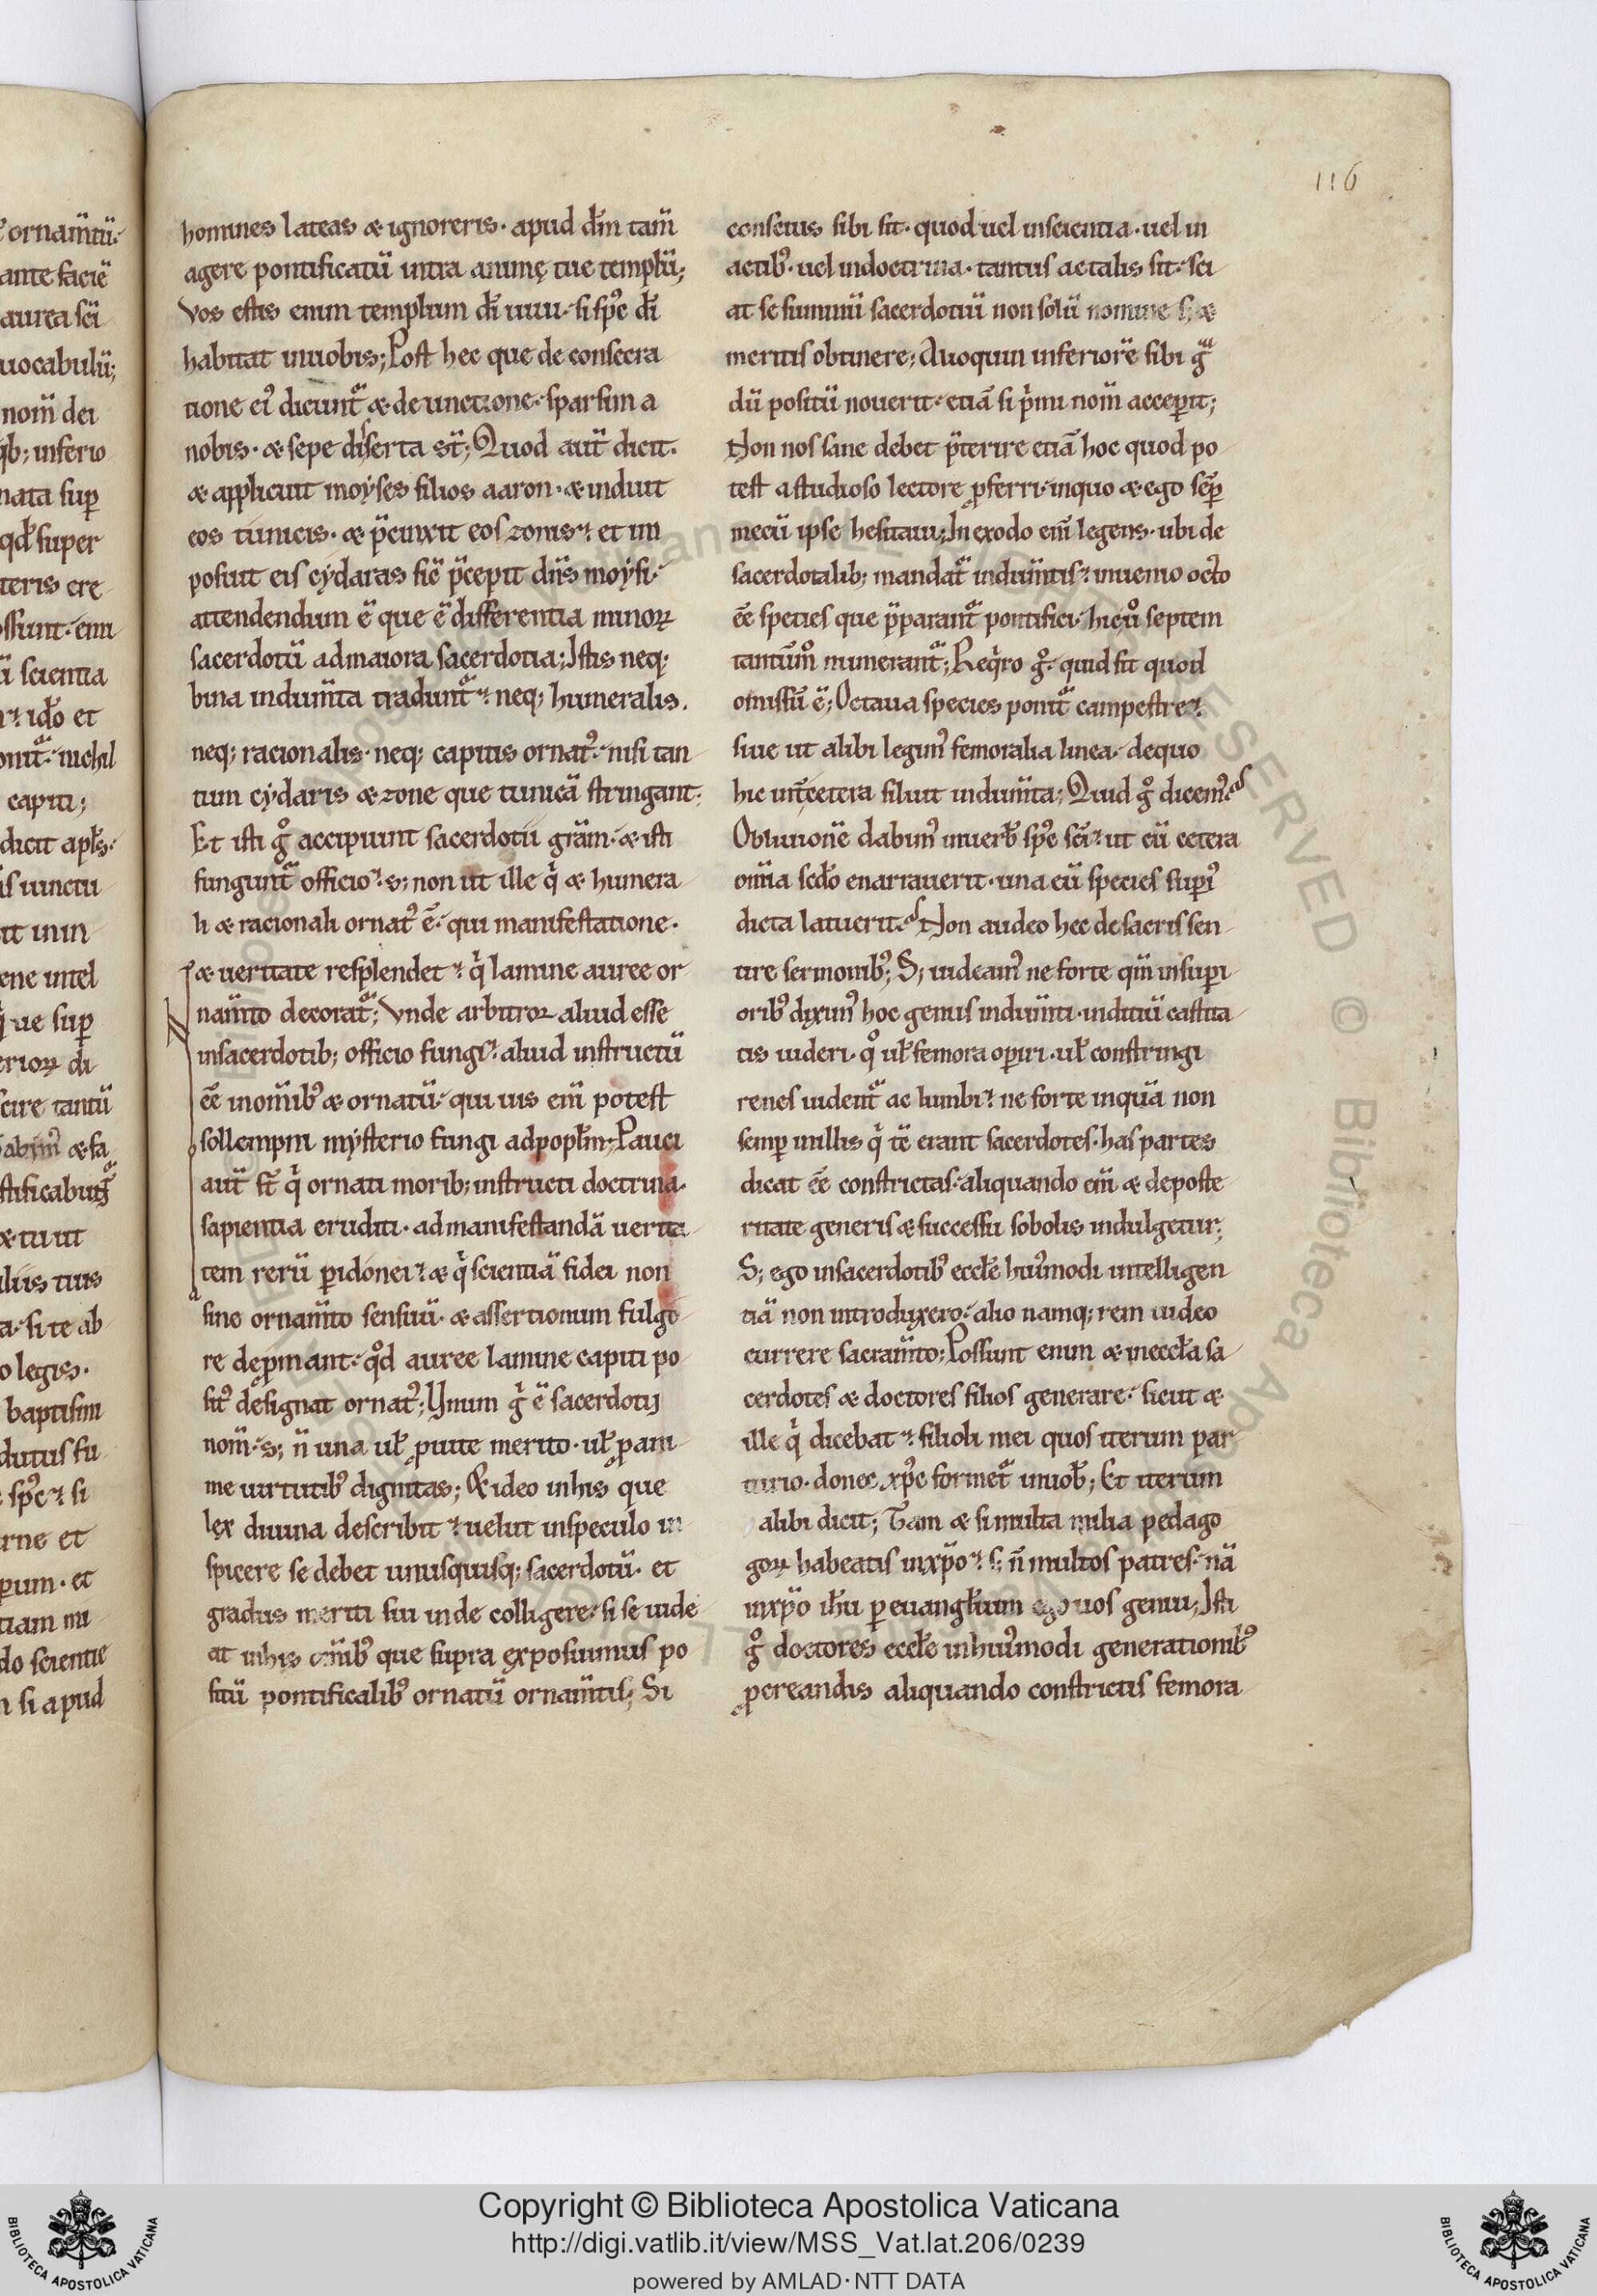 116
homines lateas & ignoreris· apud dm̄ tam̄
agere pontificatū intra animę tue templū;
Vos estis enim templum di̅ uiui· si sp̅c di̅
habitat inuobis; Post hec que de consecra
tione eiꝰ dicunt᷑ & de unctione· sparsim a
nobis· & sepe diserta st̅; Quod aut̅ dicit·
& applicuit moyses filios aaron· & induit
eos tunicis· & p̅cinxit eos zonis· et im
posuit eis cydaras sic̅ p̅cepit dn̅s moysi·
attendendum ē que ē differentia minoꝝ
sacerdotū admaiora sacerdotia; Istis neq;
bina indum̅ta tradunt᷑· neq; humeralis.
neq; racionalis· neq; capitis ornatꝰ· nisi tan
tum cydaris & zone que tunicā stringant·
Et isti gͦ accipiunt sacerdotii gr̅am· & isti
fungunt᷑ officio· s; non ut ille qͥ & humera
li & racionali ornatꝰ ē· qui manifestatione·
& ueritate resplendet· qͥ lamine auree or
nam̅to decorat᷑; Vnde arbitror aliud esse
insacerdotib; officio fungi· aliud instructū
ēē inom̅ibꝰ & ornatū· qui uis em̅ potest
sollempni mysterio fungi adpopl̅m; Pauci
aut̅ st̅ qͥ ornati morib; instructi doctrina·
sapientia eruditi· admanifestandā uerita
tem rerū ꝑidonei· & qͥ scientiā fidei non
sine ornam̅to sensuū· & assertionum fulgo
re deꝓmant· qͦd auree lamine capiti po
sitꝰ designat ornatꝰ; Vnum gͥ ē sacerdotij
nom̅· s; n̅ una ul̅ ꝓuite merito· ul̅ ꝓani
me uirtutibꝰ dignitas; & ideo inhis que
lex diuina describit· uelut inspeculo in
spicere se debet unusquisq; sacerdotū· et
gradus meriti sui inde colligere· si se uide
at inhis om̅ibꝰ que supra exposuimus po
sitū pontificalibꝰ ornatū ornam̅tis; Si
conscius sibi sit· quod uel inscientia· uel in
actibꝰ· uel indoctrina· tantus ac talis sit· sci
at se summū sacerdotiū non solū nomine s; &
meritis obtinere; Alioquin inferiorē sibi gͣ
dū positū nouerit· etiā si pͥmi nom̅ acceꝑit;
Non nos sane debet p̅terire etiā hoc quod po
test a studioso lectore ꝓferri· inquo & ego sēꝑ
mecū ipse hesitaui; In exodo em̅ legens· ubi de
sacerdotalib; mandat᷑ indum̅tis· inuenio octo
ēē species que p̅parant᷑ pontifici· hic uͦ septem
tantūmͦ numerant᷑; Reqͥro gͦ· quid sit quod
omissū ē; Octaua species ponit᷑ campestre·
siue ut alibi legimꝰ femoralia linea· dequo
hic int̅ cetera siluit indum̅ta; Quid gͦ dicemꝰ·
Obliuionē dabimꝰ inuerb̅ sp̅c sc̅i· ut cū cetera
om̅ia scd̅o enarrauerit· una eū species suꝑiꝰ
dicta latuerit· Non audeo hec de sacris sen
tire sermonibꝰ; S; uideamꝰ ne forte qm̅ insuꝑi
oribꝰ diximꝰ hoc genus indum̅ti· inditiū castita
tis uideri· qͦ ul̅ femora oꝑiri· ul̅ constringi
renes uident᷑ ac lumbi· ne forte inquā non
semꝑ inillis qͥ tē erant sacerdotes· has partes
dicat ēē constrictas· aliquando em̅ & deposte
ritate generis & successu sobolis indulgetur;
S; ego insacerdotibꝰ eccl̅e huꝰmodi intelligen
tiā non introduxero· alio namq; rem uideo
currere sacram̅to; Possunt enim & ineccl̅a sa
cerdotes & doctores filios generare· sicut &
ille qͥ dicebat· filioli mei quos iterum par
turio· donec xp̅c formet᷑ inuob̅; Et iterum
alibi dicit; Tam & si multa milia pedago
goꝝ habeatis inxp̅o· s; n̅ multos patres· nā
inxp̅o ih̅u ꝑ euangl̅ium ego uos genui; Isti
gͦ doctores eccl̅e inhuꝰmodi generationibꝰ
ꝓcreandis aliquando constrictis femora
Copyright © Biblioteca Apostolica Vaticana
http://digi.vatlib.it/view/MSS_Vat.lat.206/0239
powered by AMLAD·NTT DATA
BIBLIOTECA APOSTOLICA VATICANA
BIBLIOTECA APOSTOLICA VATICANA